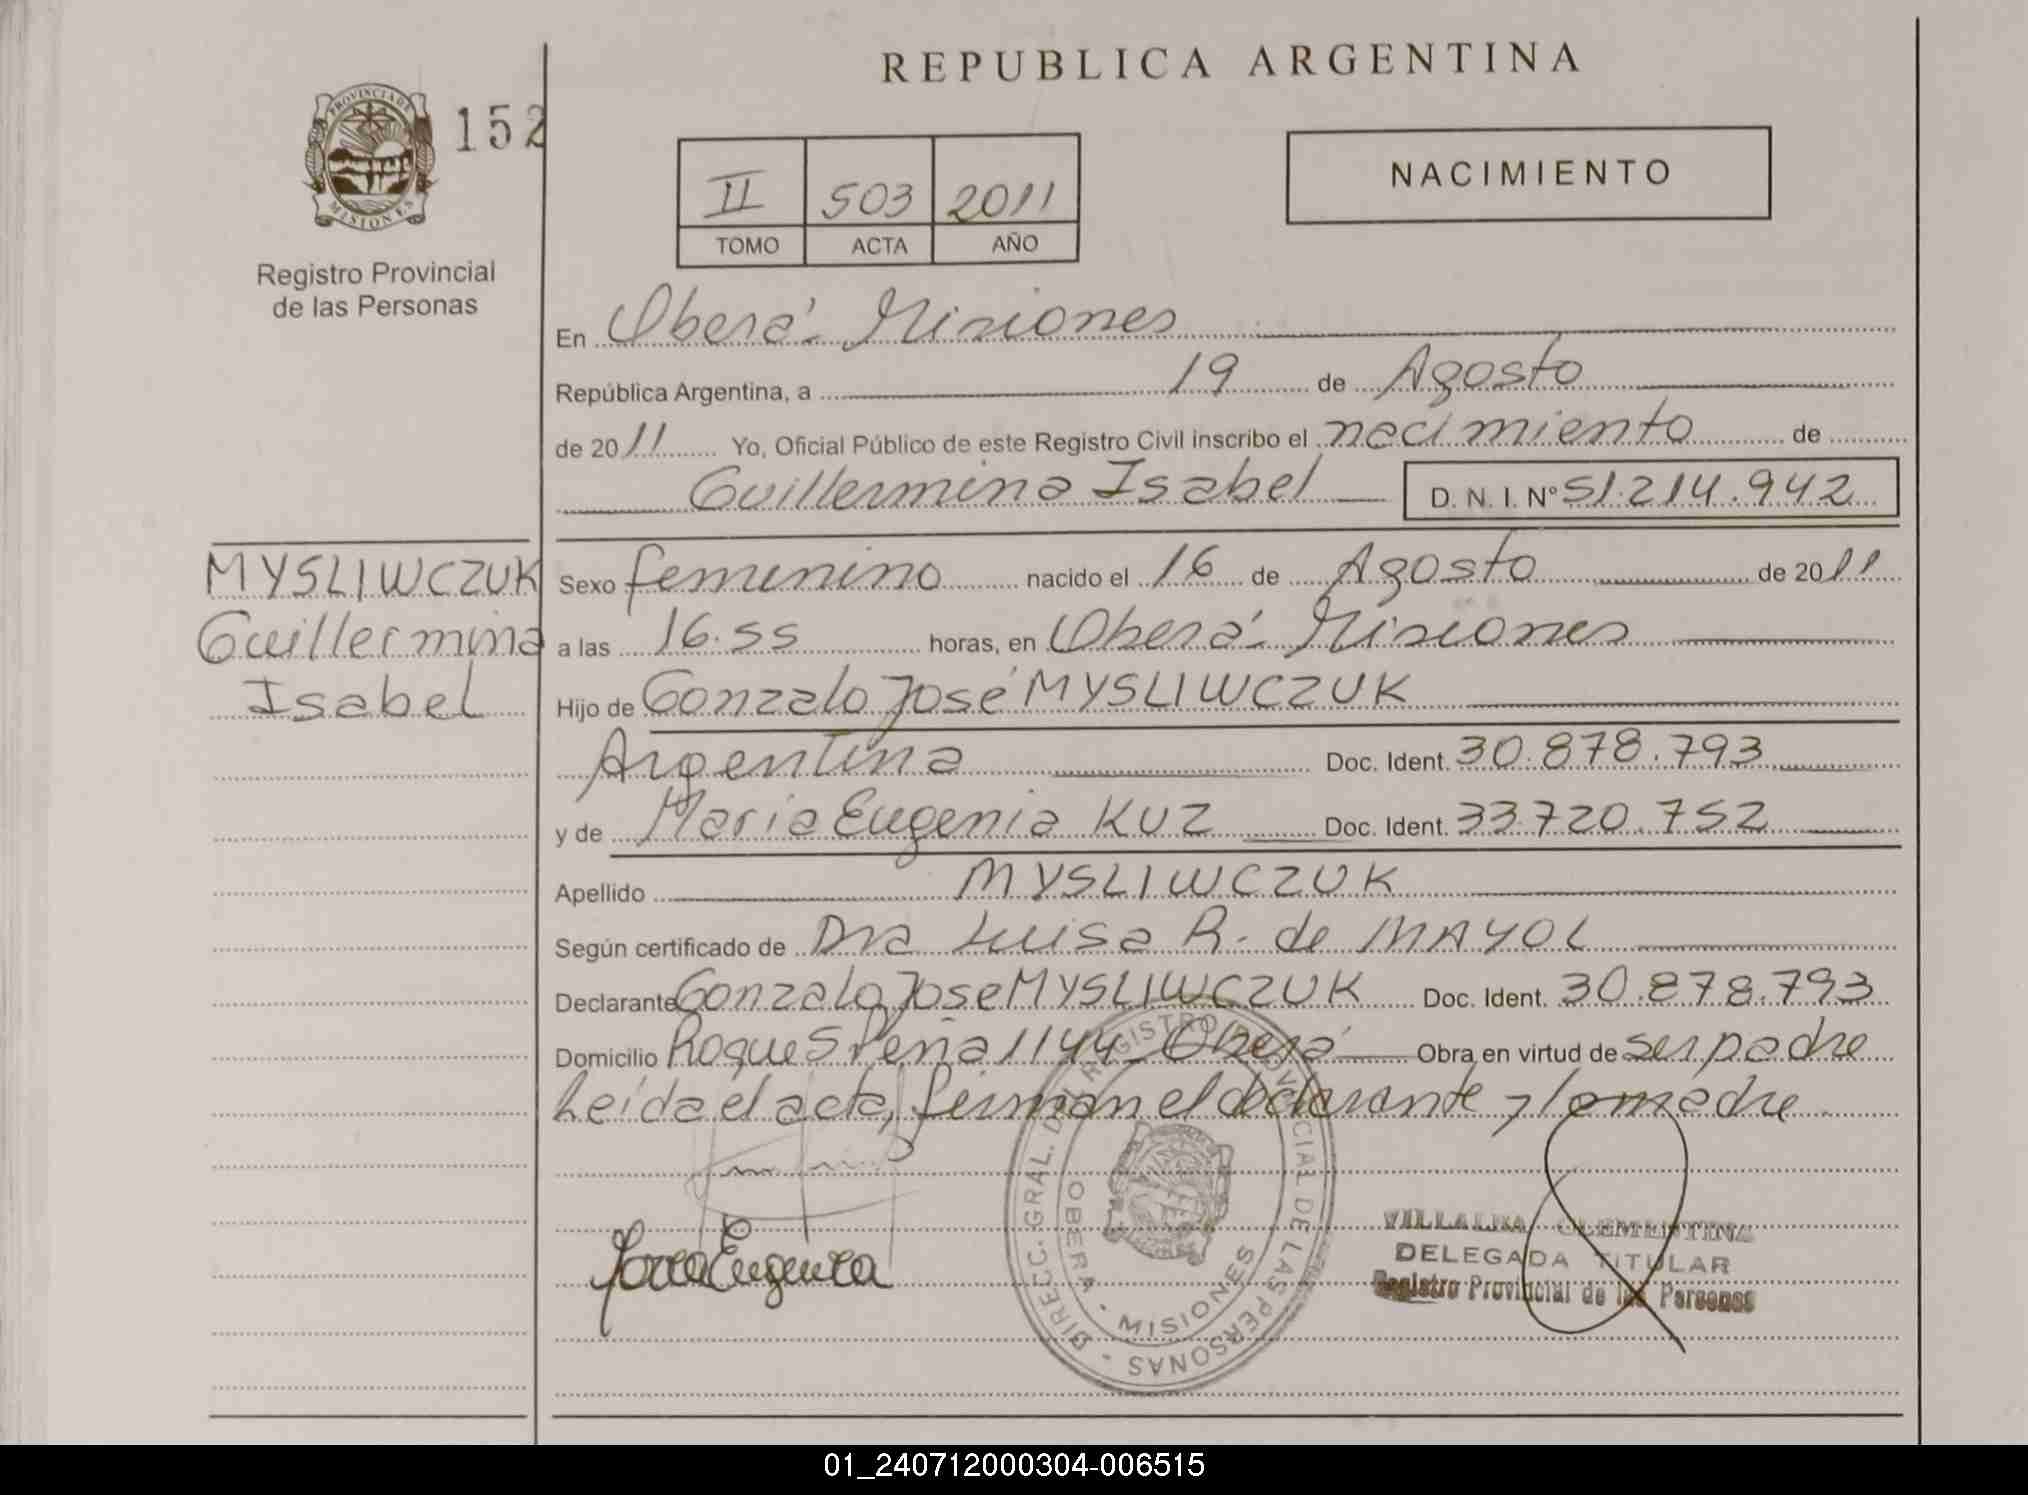 REPUBLICA ARGENTINA
PROVINCIA DE MISIONES
152
Registro Provincial
de las Personas
II 503 2011
TOMO ACTA AÑO
NACIMIENTO
En Oberá - Misiones
República Argentina, a 19 de Agosto
de 2011 Yo, Oficial Público de este Registro Civil inscribo el nacimiento de
Guillermina Isabel D. N. I. N° 51.214.942
MYSLIWCZUK
Guillermina
Isabel
Sexo femenino nacido el 16 de Agosto de 2011
a las 16.55 horas, en Oberá - Misiones
Hijo de Gonzalo José MYSLIWCZUK
Argentina Doc. Ident. 30.878.793
y de María Eugenia KUZ Doc. Ident. 33.720.752
Apellido MYSLIWCZUK
Según certificado de Dra Luisa R. de MAYOL
Declarante Gonzalo José MYSLIWCZUK Doc. Ident. 30.878.793
Domicilio Roque S Peña 1144 - Oberá Obra en virtud de ser padre
Leída el acta, firman el declarante y la madre
DIREC. GRAL. DEL REGISTRO PROVINCIAL DE LAS PERSONAS
OBERA - MISIONES
María Eugenia
VILLALBA CLEMENTINA
DELEGADA TITULAR
Registro Provincial de las Personas
01_240712000304-006515